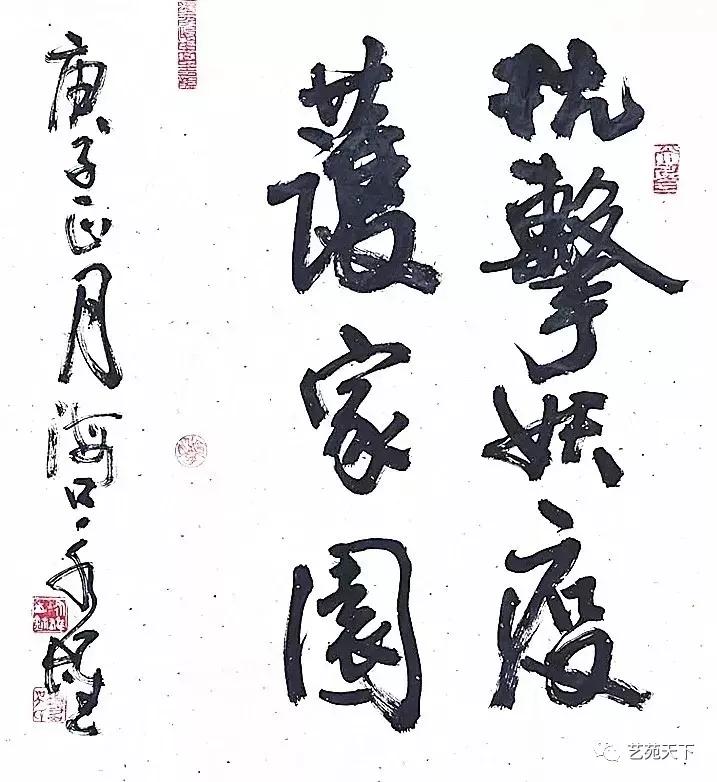 抗擊妖疫
護家園
庚子正月海口
艺苑天下